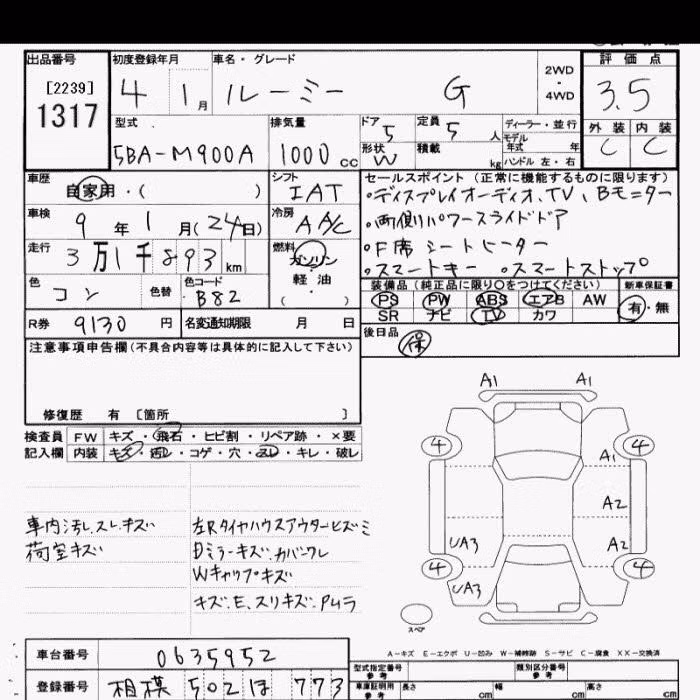 出品番号 初度登録年月 車名・グレード 評価点
[2239] 4 1月 ルーミー G 2WD ・ 4WD 3.5
1317
型式 排気量 ドア 5 定員 5人 ディーラー・並行 外装 内装
5BA-M900A 1000cc 形状 W 積載 kg モデル年式 年 C C
ハンドル 左・右
車歴 自家用・( ) シフト IAT セールスポイント (正常に機能するものに限ります)
・ディスプレイオーディオ、TV、Bモニター
車検 9年1月(24日) 冷房 AA/C ・両側パワースライドドア
走行 3万1千893km 燃料 ガソリン ・F席シートヒーター
軽油 ・スマートキー ・スマートストップ
色 コン 色替 色コード B82 装備品 (純正品に限り○をつけてください) 新車保証書
PS PW ABS エアB AW 有・無
R券 9130円 名変通知期限 月 日 SR ナビ TV カワ
注意事項申告欄(不具合内容等は具体的に記入して下さい) 後日品 保
修復歴 有 〔箇所 〕
検査員 FW キズ・飛石・ヒビ割・リペア跡・×要
記入欄 内装 キズ・汚レ・コゲ・穴・スレ・キレ・破レ
A1 A1
4 4
A1
A2
UA3 A2
4 4
UA3
スペア
車内汚レ、スレ、キズ 左Rタイヤハウスアウターヒズミ
荷室キズ Dミラーキズ、カバーワレ
Wキャップキズ
キズ、E、スリキズ、PMラ
A-キズ E-エクボ U-凹み W-補修跡 S-サビ C-腐食 XX-交換済
車台番号 0635952 型式指定番号 参考 類別区分番号 参考
登録番号 相模 502 ほ 773 車庫証明用 参考 長さ cm 幅 cm 高さ cm